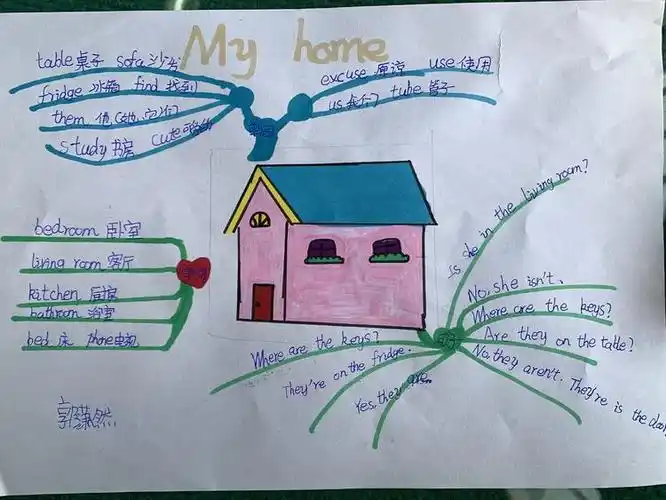 My home
table桌子 sofa沙发
fridge 冰箱 find 找到
them 他(她、它)们
study 书房 cute可爱的
excuse 原谅 use 使用
us 我们 tube 管子
bedroom 卧室
living room 客厅
kitchen 厨室
bathroom 浴室
bed 床 phone电视
Is she in the living room?
No, she isn't.
Where are the keys?
Are they on the table?
No, they aren't. They're is the door
Where are the keys?
They're on the fridge.
Yes, they are.